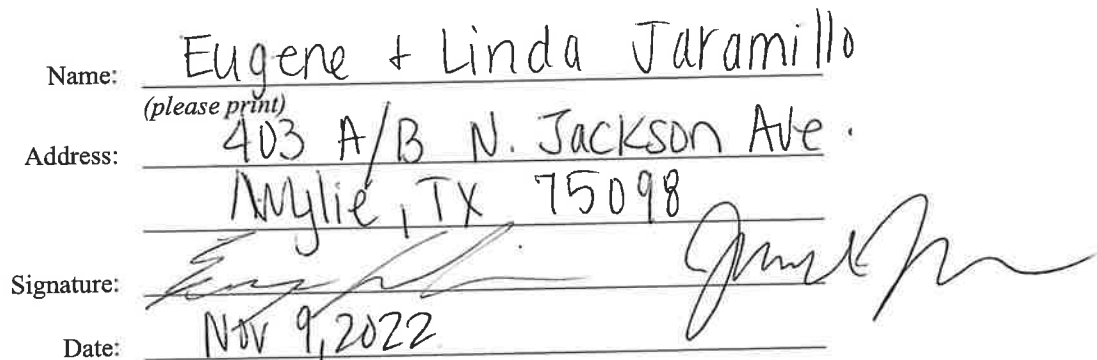 Name: Eugene + Linda Jaramillo
(please print)
Address: 403 A/B N. Jackson Ave.
Wylie, TX 75098
Signature:
Date: Nov 9, 2022